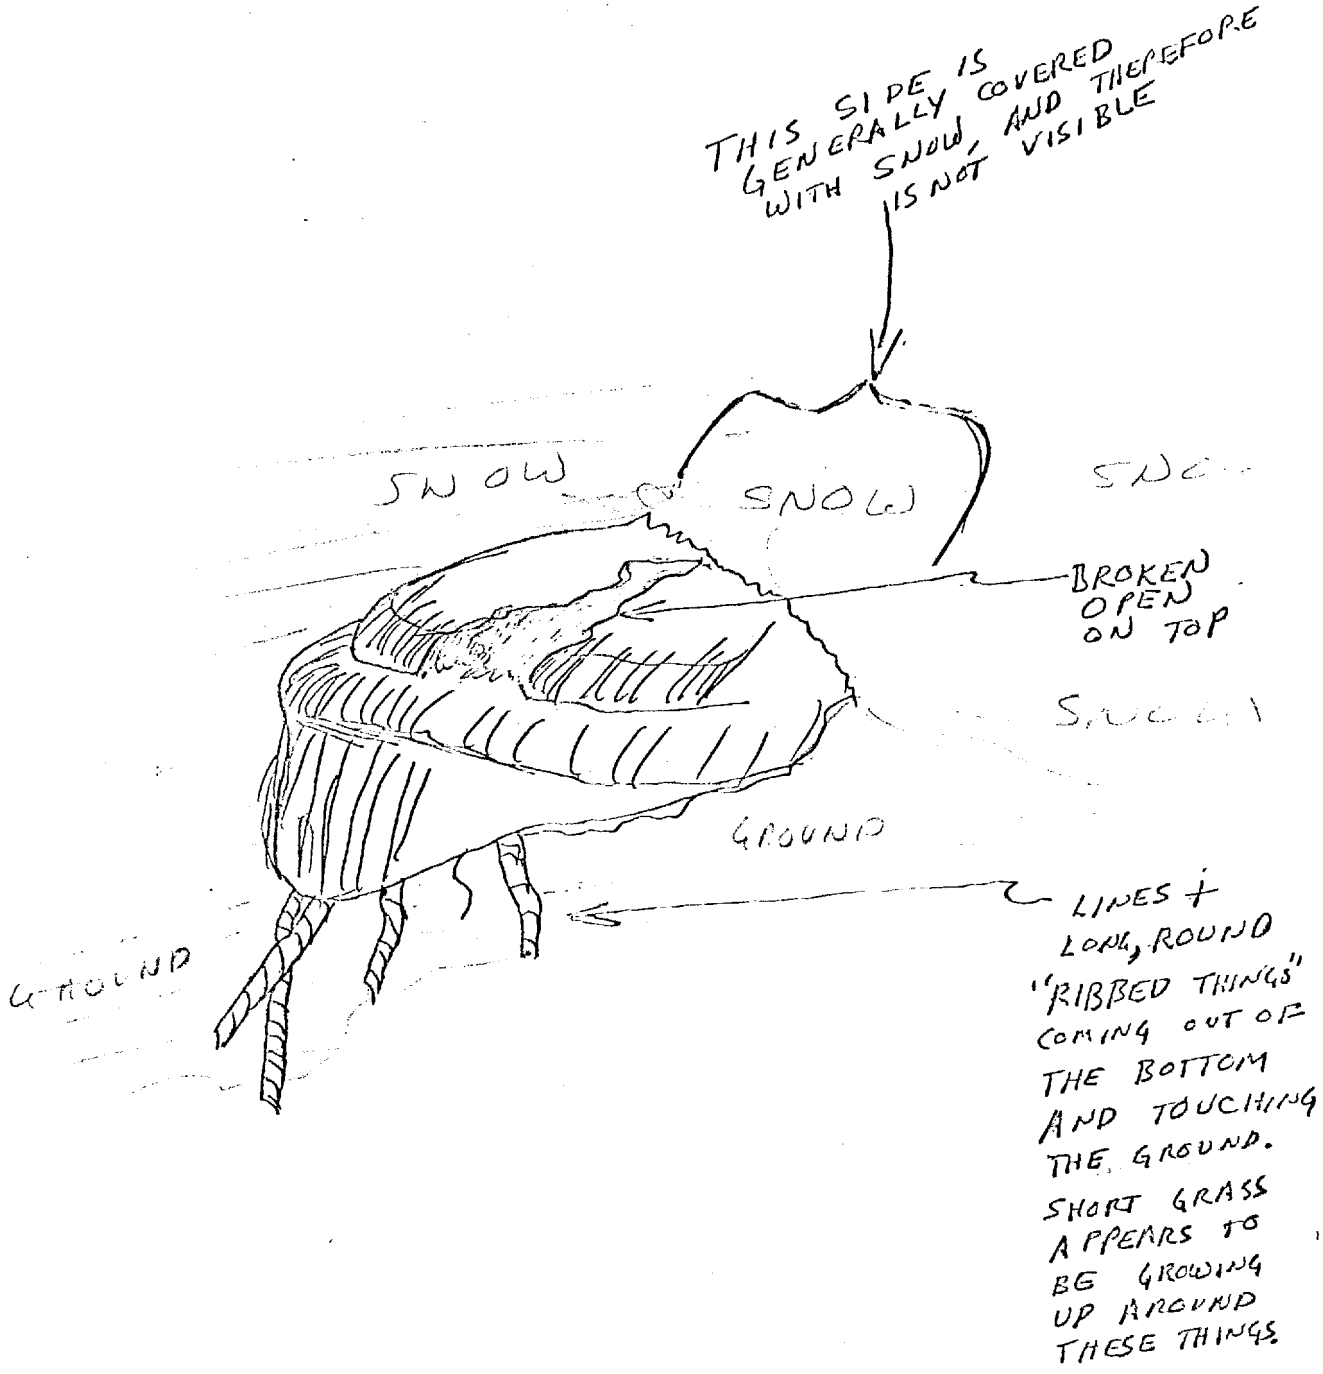 THIS SIDE IS
GENERALLY COVERED
WITH SNOW, AND THEREFORE
IS NOT VISIBLE
SNOW
SNOW
SNO
BROKEN
OPEN
ON TOP
GROUND
GROUND
LINES +
LONG, ROUND
"RIBBED THINGS"
COMING OUT OF
THE BOTTOM
AND TOUCHING
THE GROUND.
SHORT GRASS
APPEARS TO
BE GROWING
UP AROUND
THESE THINGS.